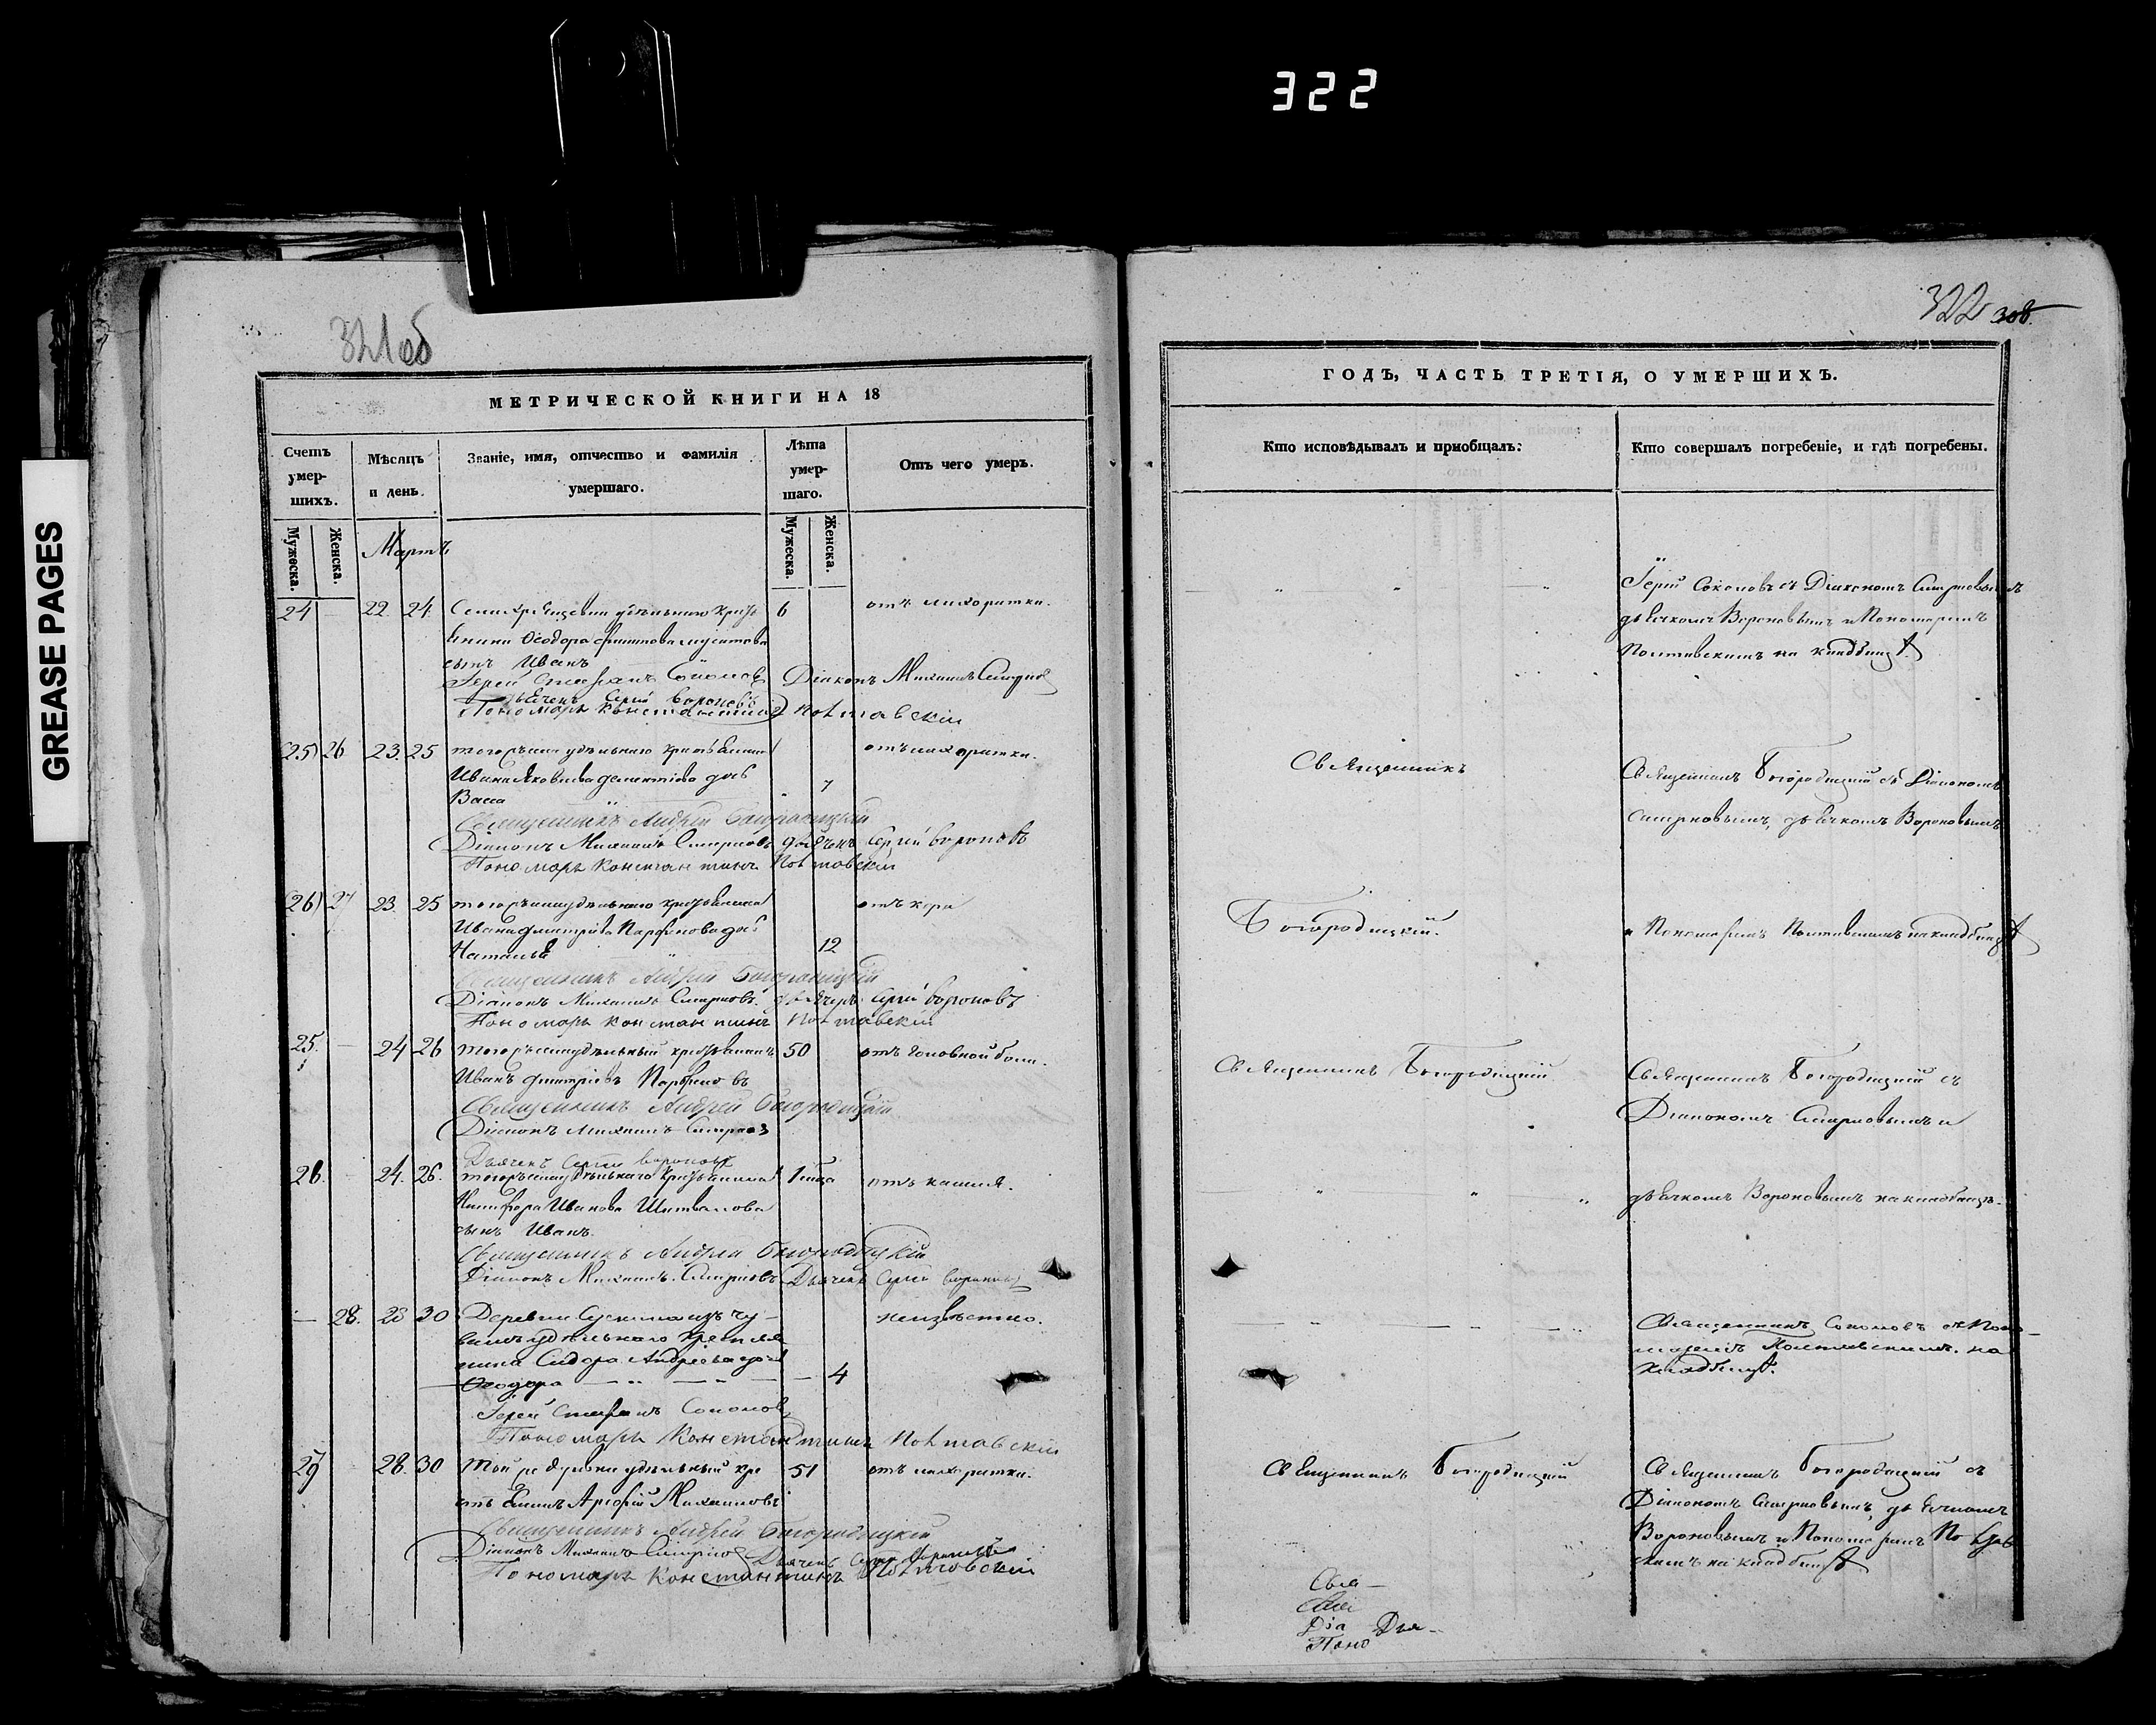 322
GREASE PAGES
321об
МЕТРИЧЕСКОЙ КНИГИ НА 18
Счетъ умер-шихъ.
Мѣсяцъ и день.
Званіе, имя, отчество и фамилія умершаго.
Лѣта умер-шаго.
Отъ чего умеръ.
Мужеска.
Женска.
Мартъ
Мужеска.
Женска.
24 — 22. 24. удѣльнаго кресть 6 отъ лихоратки.
янина Ѳеодора
сынъ Иванъ
Іерей Стефанъ Соколовъ Діаконъ Михаилъ Смирновъ
Дьячекъ Сергій Вороновъ
Пономарь Константинъ Полтавскій
(25) 26 23. 25 тогожъ села удѣльнаго крестьянина отъ лихоратки.
Ивана Яковлева Дементіева дочь 7
Васса
Священникъ Андрей Богородицкій
Діаконъ Михаилъ Смирновъ Дьячекъ Сергій Вороновъ
Пономарь Константинъ Полтавскій
(26) 27 23. 25 тогожъ села удѣльнаго крестьянина отъ кори
Ивана Дмитріева Парфенова дочь
Наталья 12
Священникъ Андрей Богородицкій
Діаконъ Михаилъ Смирновъ. дьячекъ Сергій Вороновъ
Пономарь Константинъ Полтавскій
25. — 24 26 тогожъ села удѣльный крестьянинъ 50 отъ головной боли.
Иванъ Дмитріевъ Парфеновъ
Священникъ Андрей Богородицкій
Діаконъ Михаилъ Смирновъ
Дьячекъ Сергій Вороновъ
26. — 24. 26. тогожъ села удѣльнаго крестьянина 1 отъ кашля.
Никифора Иванова
сынъ Иванъ.
Священникъ Андрей Богородицкій
Діаконъ Михаилъ Смирновъ Дьячекъ Сергій Вороновъ
— 28. 28 30 Деревни изъ чу-
вашъ удѣльнаго крестья
нина Сидора Андреева дочь
Ѳеодора 4 неизвѣстно.
Іерей Стефанъ Соколовъ
Пономарь Константинъ Полтавскій
27 — 28. 30 Той же деревни удѣльный кре 51 отъ лихоратки.
стьянинъ Михаиловъ
Священникъ Андрей Богородицкій
Діаконъ Михаилъ Смирновъ Дьячекъ Сергій Вороновъ
Пономарь Константинъ Полтавскій
322 308.
ГОДЪ, ЧАСТЬ ТРЕТІЯ, О УМЕРШИХЪ.
Кто исповѣдывалъ и пріобщалъ:
Кто совершалъ погребеніе, и гдѣ погребены.
Іерей Соколовъ съ Діакономъ Смирновымъ
дьячкомъ Вороновымъ и Пономаремъ
Полтавскимъ на кладбищѣ
Священникъ
Священникъ Богородицкій съ Діакономъ
Смирновымъ, дьячкомъ Вороновымъ
Богородицкій.
и Пономаремъ Полтавскимъ на кладбищѣ
Священникъ Богородицкій
Священникъ Богородицкій съ
Діакономъ Смирновымъ и
дьячкомъ Вороновымъ на кладбищѣ.
Священникъ Соколовъ съ Поно-
маремъ Полтавскимъ. на
кладбищѣ.
Священникъ Богородицкій
Священникъ Богородицкій съ
Діакономъ Смирновымъ, дьячкомъ
Вороновымъ и Пономаремъ Полтав
скимъ на кладбищѣ
Свя—
Свя
Діа Дья-
Поно